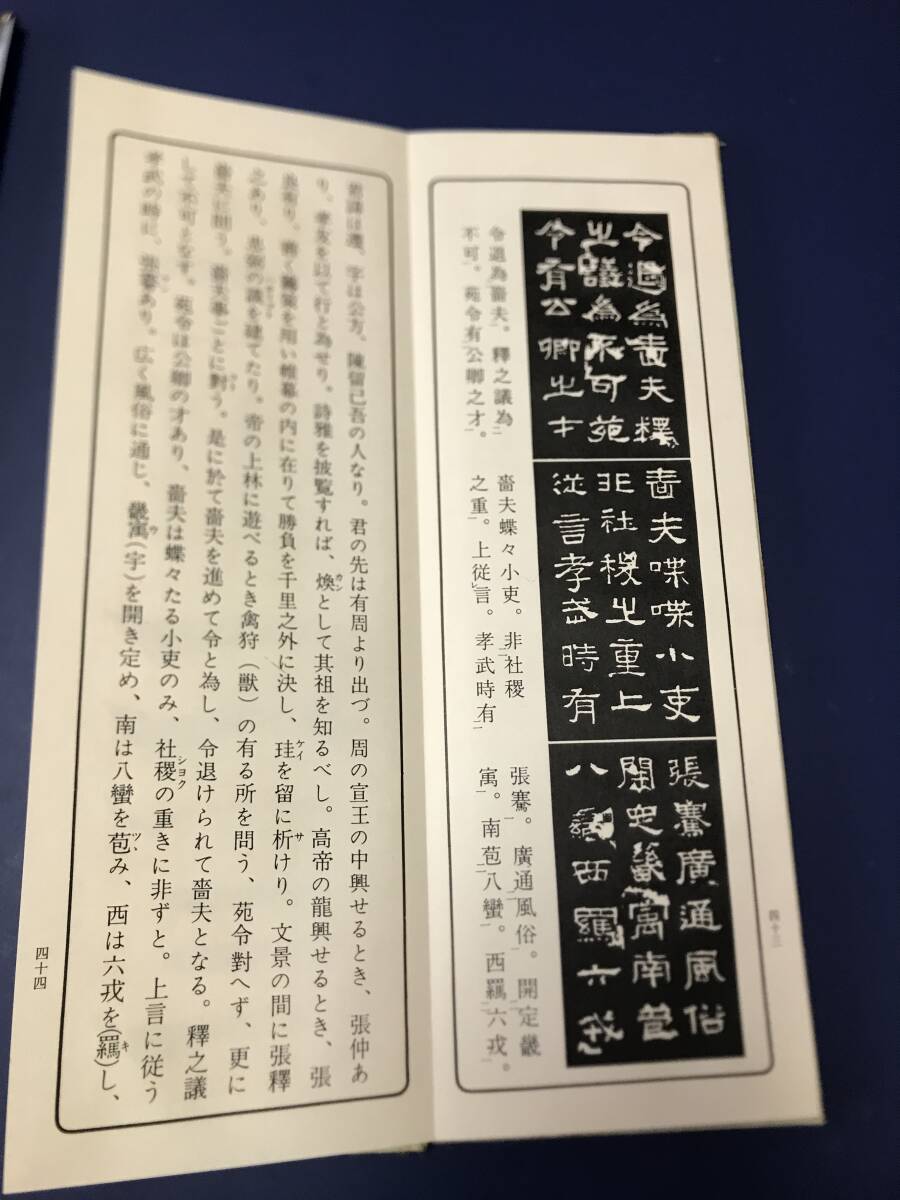 令退為嗇夫釋
之議為不可苑
令有公卿之才
嗇夫喋喋小吏
非社稷之重上
從言孝武時有
張騫廣通風俗
開定畿寓南苞
八蠻西羈六戎
令退為嗇夫。釋之議為
不可。苑令有公卿之才。
嗇夫蝶々小吏。非社稷
之重。上従言。孝武時有
張騫。廣通風俗。開定畿
寓。南苞八蠻。西羈六戎。
四十三
君諱は遷、字は公方、陳留己吾の人なり。君の先は有周より出づ。周の宣王の中興せるとき、張仲あ
り、孝友を以て行と為せり。詩雅を披覧すれば、煥として其祖を知るべし。高帝の龍興せるとき、張
良有り、善く籌策を用い帷幕の内に在りて勝負を千里之外に決し、珪を留に析けり。文景の間に張釋
之あり、忠弼の謨を建てたり。帝の上林に遊べるとき禽狩(獣)の有る所を問う、苑令對へず、更に
嗇夫に問う。嗇夫事ごとに對う。是に於て嗇夫を進めて令と為し、令退けられて嗇夫となる。釋之議
して不可となす。苑令は公卿の才あり、嗇夫は蝶々たる小吏のみ、社稷の重きに非ずと。上言に従う
孝武の時に、張騫あり。広く風俗に通じ、畿寓(宇)を開き定め、南は八蠻を苞み、西は六戎を(羈)し、
四十四